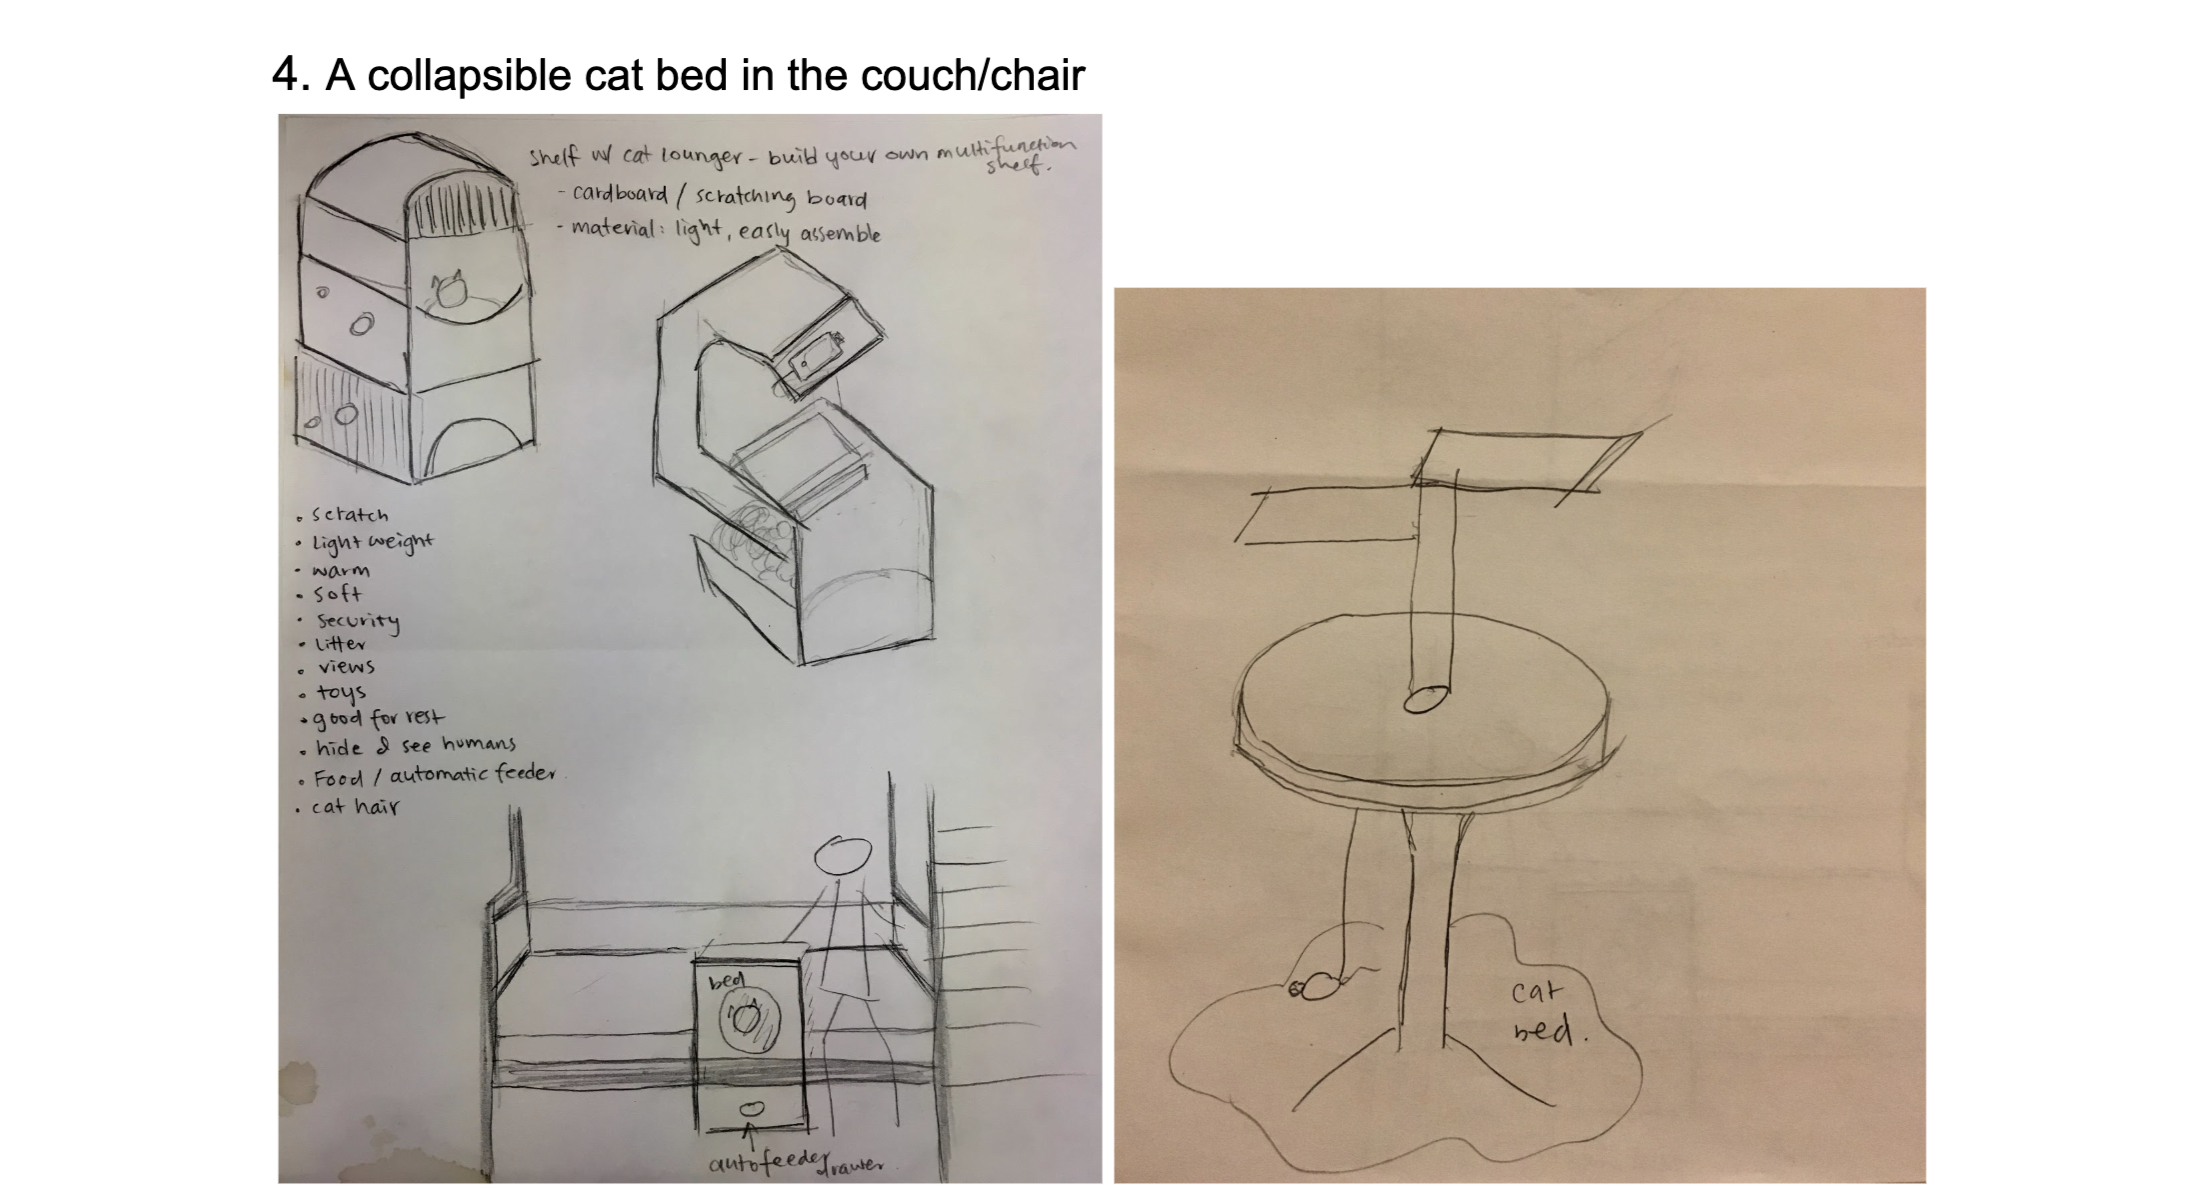 4. A collapsible cat bed in the couch/chair
shelf w/ cat lounger - build your own multifunction
shelf.
- cardboard / scratching board
- material: light, easly assemble
• scratch
• Light weight
• warm
• soft
• security
• litter
• views
• toys
• good for rest
• hide & see humans
• Food / automatic feeder
• cat hair
bed
autofeeder
drawer
cat
bed.